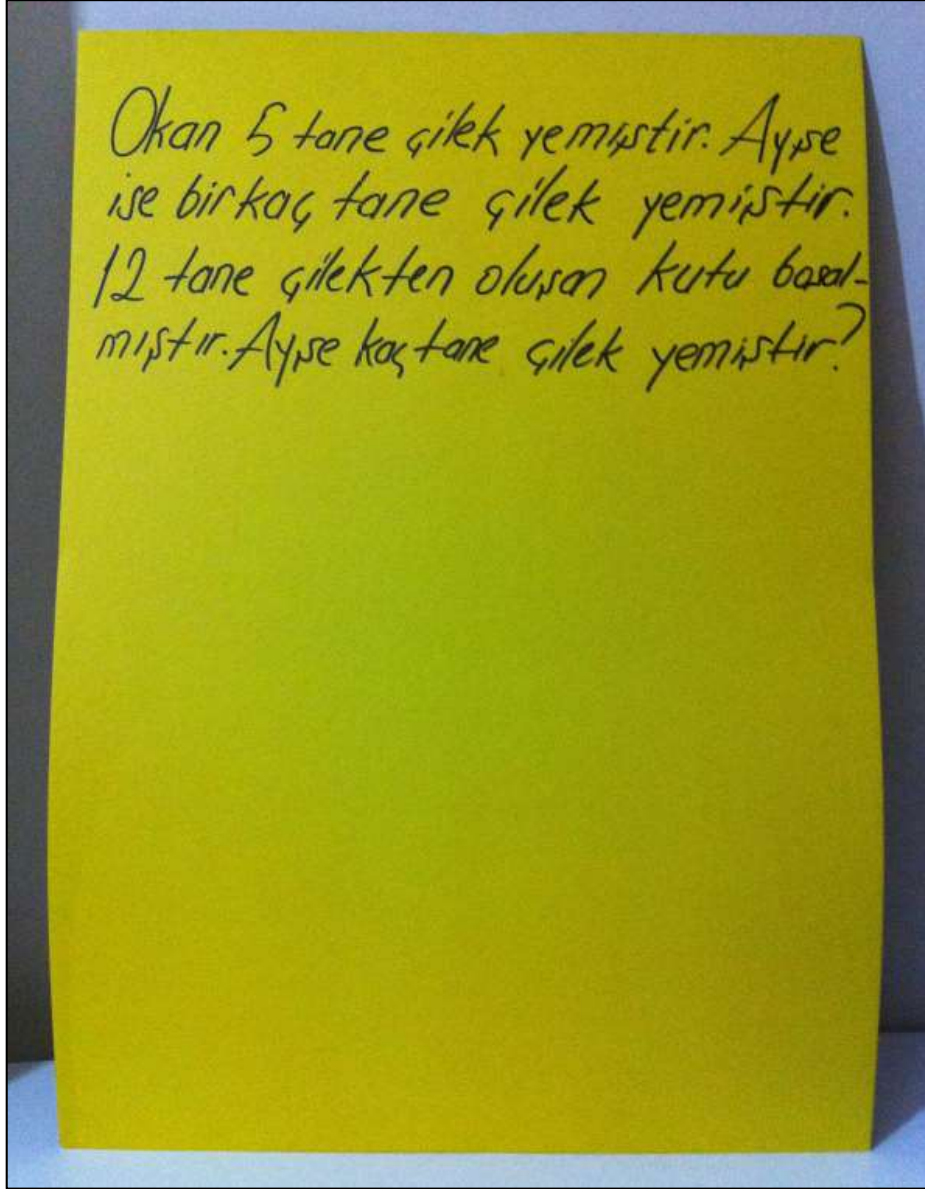 Okan 5 tane çilek yemiştir. Ayşe
ise birkaç tane çilek yemiştir.
12 tane çilekten oluşan kutu boşal-
mıştır. Ayşe kaç tane çilek yemiştir?